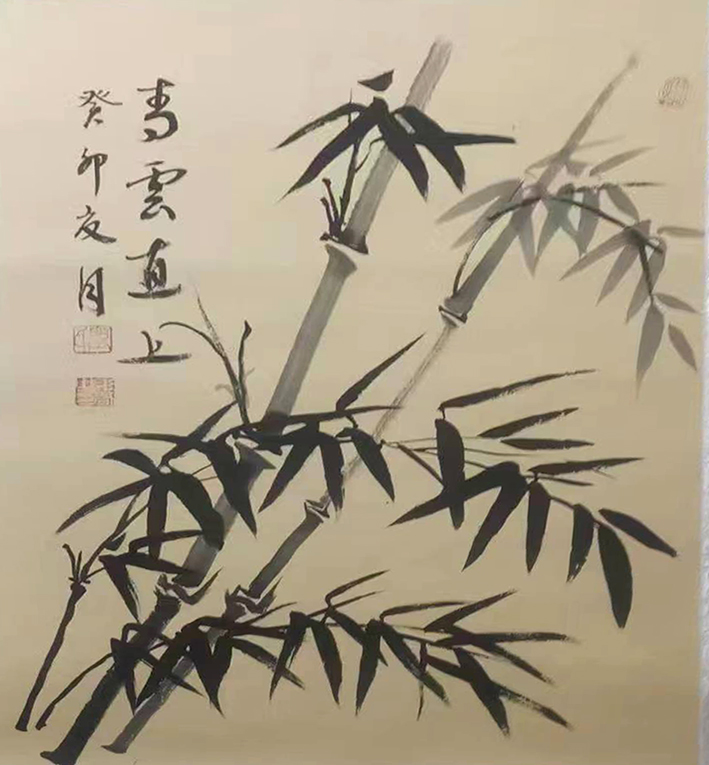 青雲直上
癸卯夏月